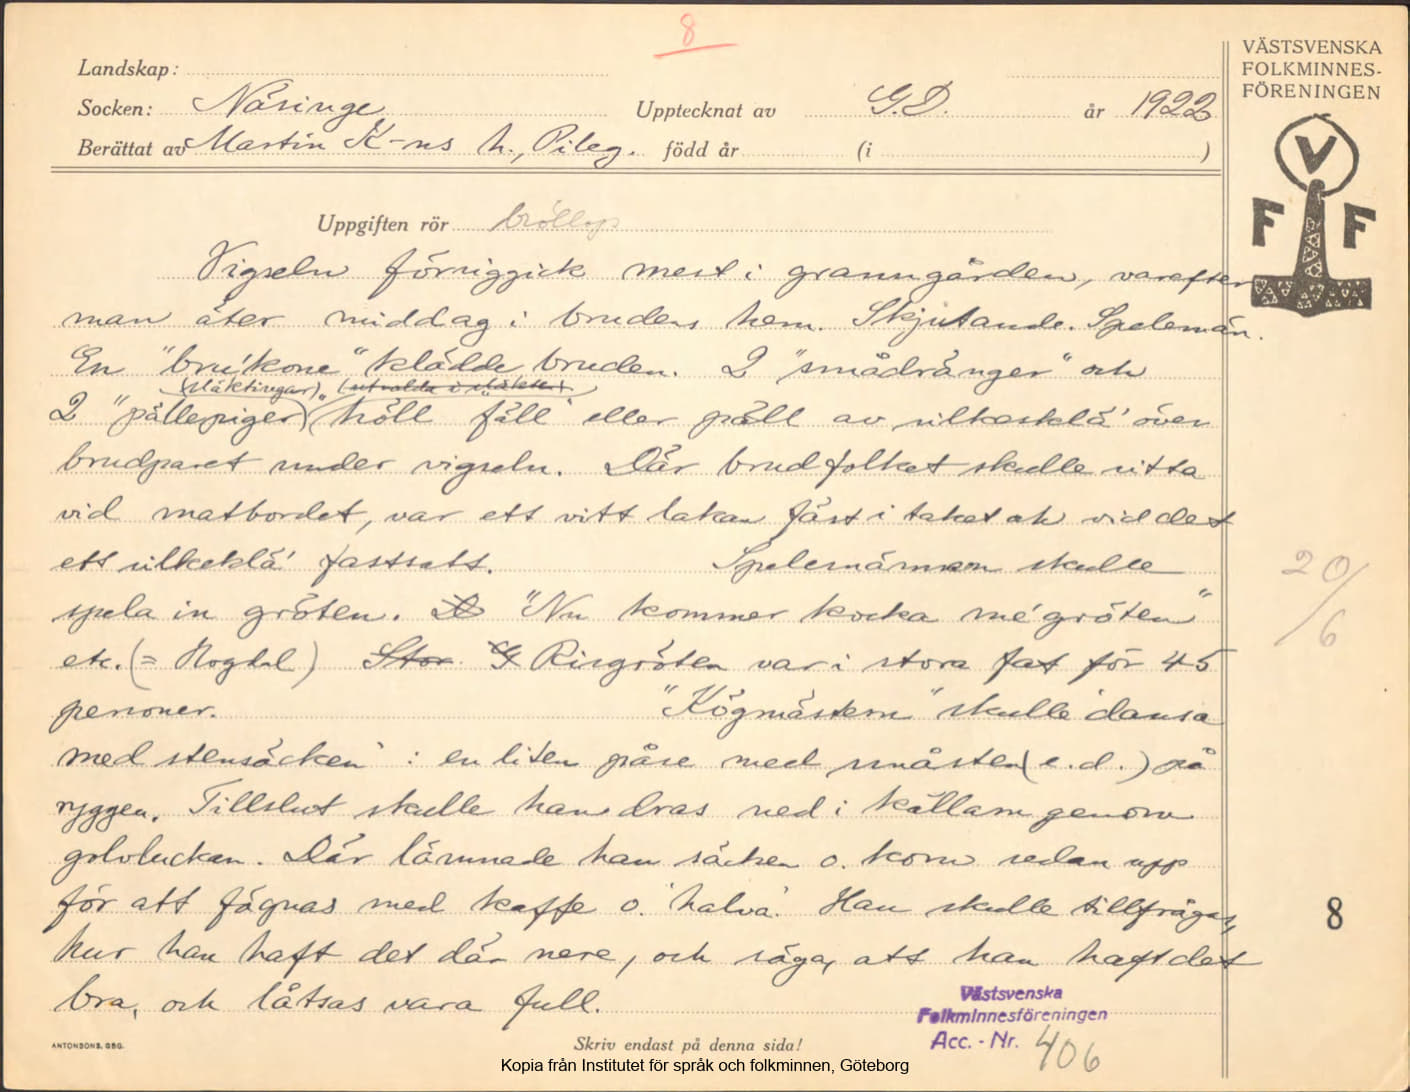 8
Landskap:
VÄSTSVENSKA
FOLKMINNES-
FÖRENINGEN
Socken: Näsinge Upptecknat av G.D. år 1922
Berättat av Martin K-ns h., Pileg. född år (i )
V
F F
Uppgiften rör bröllop
Vigseln försiggick mest i granngården, varefter
man åter middag i brudens hem. Skjutande. Spelemän.
En "bru'kone" klädde bruden. 2 "smådränger" och
(släktingar) (utvalda i släkten)
2 "pällepiger" höll "päll" eller päll av silkesklä' över
brudparet under vigseln. Där brudfolket skulle sitta
vid matbordet, var ett vitt lakan fäst i taket och vid det
ett silkeklä' fastsatt. Spelemännen skulle
spela in gröten. "Nu kommer kocka mé gröten"
etc. (= Hogdal) Stor G Risgröten var i stora fat för 45
personer. "Kögmästern" skulle 'dansa
med stensäcken' : en liten påse med småsten (e.d.) på
ryggen. Tillslut skulle han dras ned i källarn genom
golvluckan. Där lämnade han säcken o. kom sedan upp
för att fägnas med kaffe o. 'halva'. Han skulle tillfrågas,
hur han haft det där nere, och säga, att han haft det
bra, och låtsas vara full.
20/6
8
Västsvenska
Folkminnesföreningen
Acc. - Nr. 406
ANTONSONS, GBG.
Skriv endast på denna sida!
Kopia från Institutet för språk och folkminnen, Göteborg